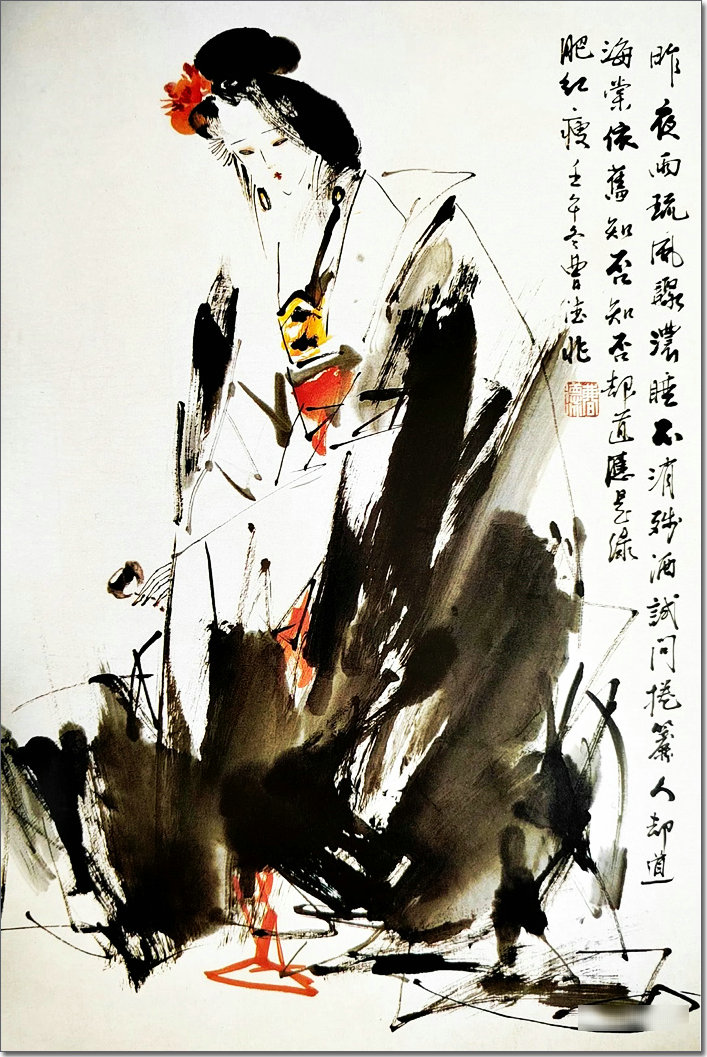 昨夜雨疏風骤濃睡不消残酒試問捲簾人却道
海棠依舊知否知否却道應是绿
肥红瘦壬午冬曹德兆